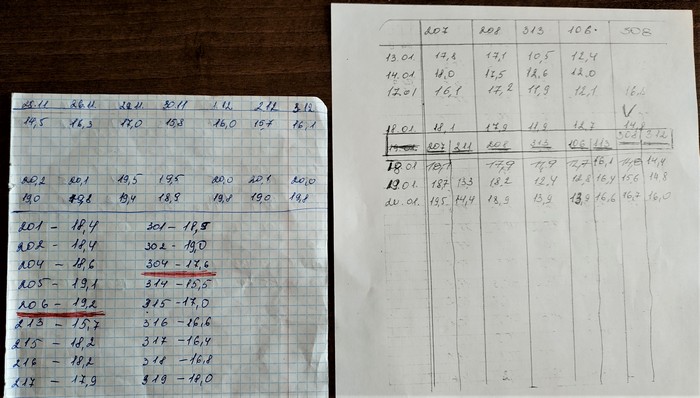 25.11 26.11 29.11 30.11 1.12 2.12 3.12
14,5 16,3 17,0 15,8 16,0 15,7 16,1
20,2 20,1 19,5 19,5 20,0 20,1 20,0
19,0 19,8 19,4 18,9 19,8 19,0 19,8
201 - 18,4 301 - 18,5
202 - 18,4 302 - 19,0
204 - 18,6 304 - 17,6
205 - 19,1 314 - 15,5
206 - 19,2 315 - 17,0
213 - 15,7 316 - 26,6
215 - 18,2 317 - 16,4
216 - 18,2 318 - 16,8
217 - 17,9 319 - 18,0
207 208 313 106 308
13.01 17,8 17,1 10,5 12,4
14.01 18,0 17,5 12,6 12,0
17.01 16,1 17,2 11,9 12,1 16,6
18.01 18,1 17,9 11,9 12,7
207 211 208 213 106 113 308 312
18.01 18,1 17,9 11,9 12,7 16,1 14,4
19.01. 18,7 13,3 18,2 12,4 12,8 16,4 15,6 14,8
20.01. 19,5 14,4 18,9 13,9 13,9 16,6 16,7 16,0